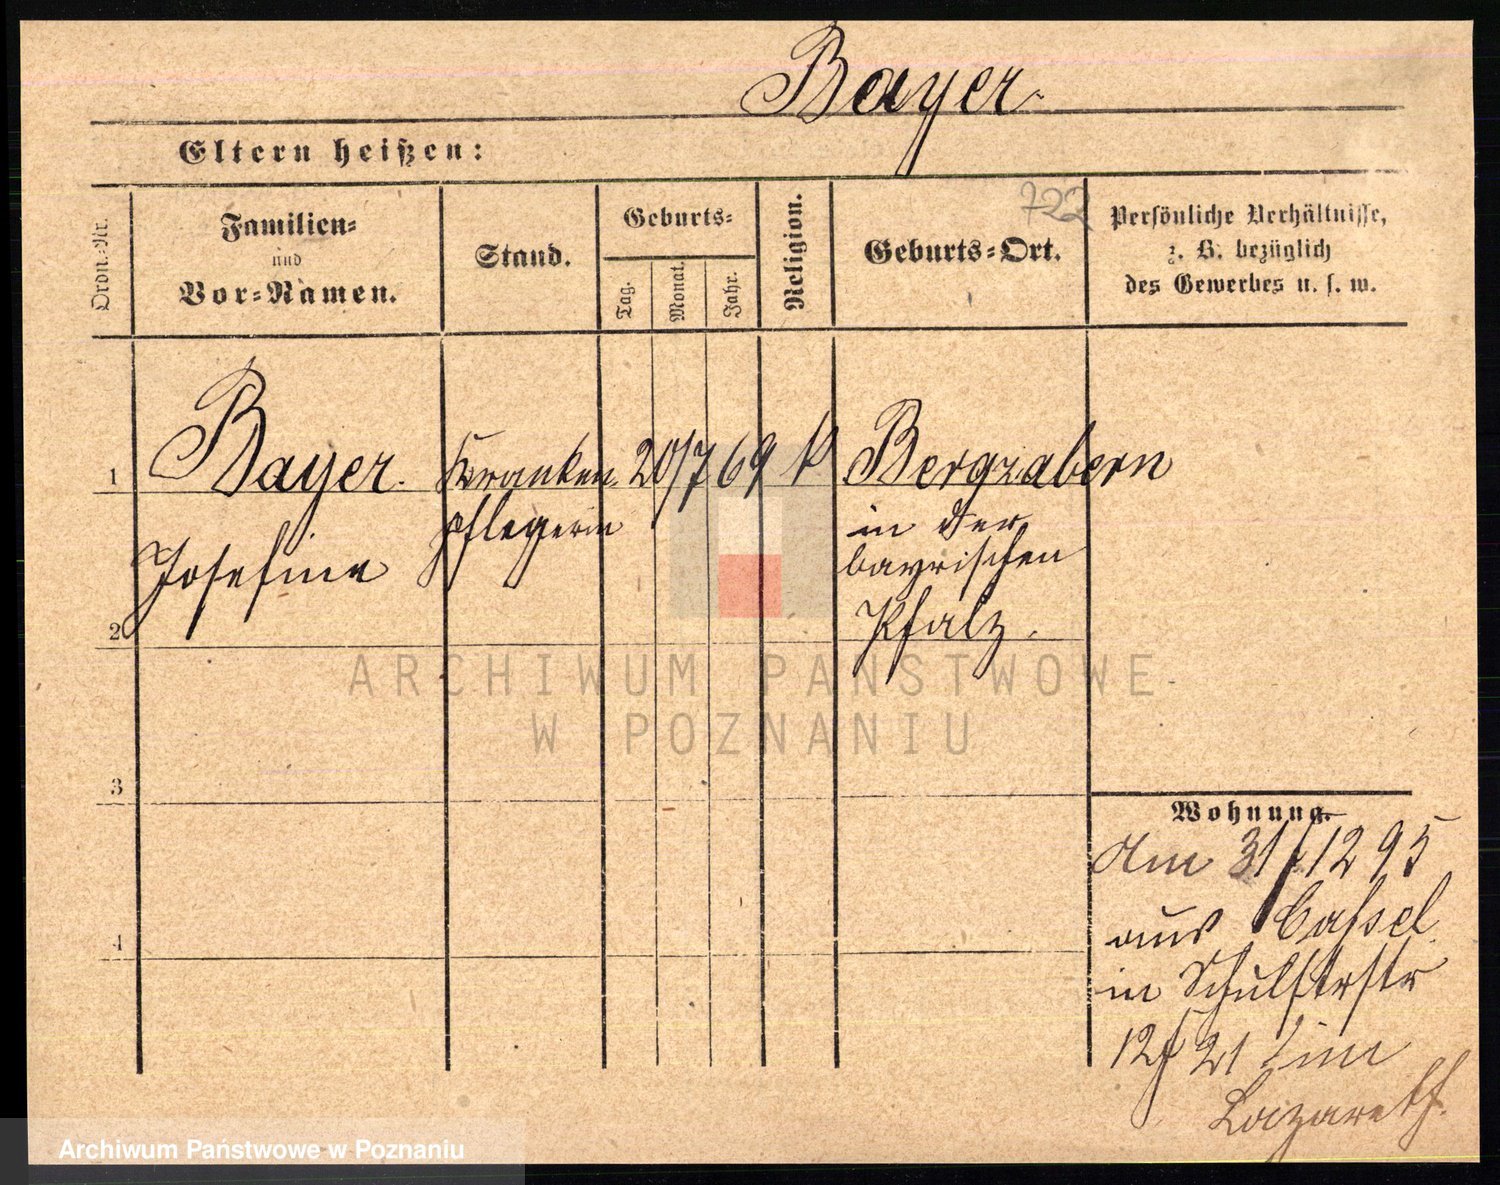 Bayer
Eltern heißen:
Ordn.-Nr.
Familien-
und
Vor-Namen.
Stand.
Geburts-
Tag.
Monat.
Jahr.
Religion.
722
Geburts-Ort.
Persönliche Verhältnisse,
z. B. bezüglich
des Gewerbes u. s. w.
1 Bayer. Kranken 20/7 69 k Bergzabern
pflegerin in der
Josefine bayrischen
2 Pfalz.
3
4
Wohnung.
Am 31/12 95
aus Cassel
in Schulstrstr
12/ 21 im
Lazareth.
ARCHIWUM PAŃSTWOWE
W POZNANIU
Archiwum Państwowe w Poznaniu